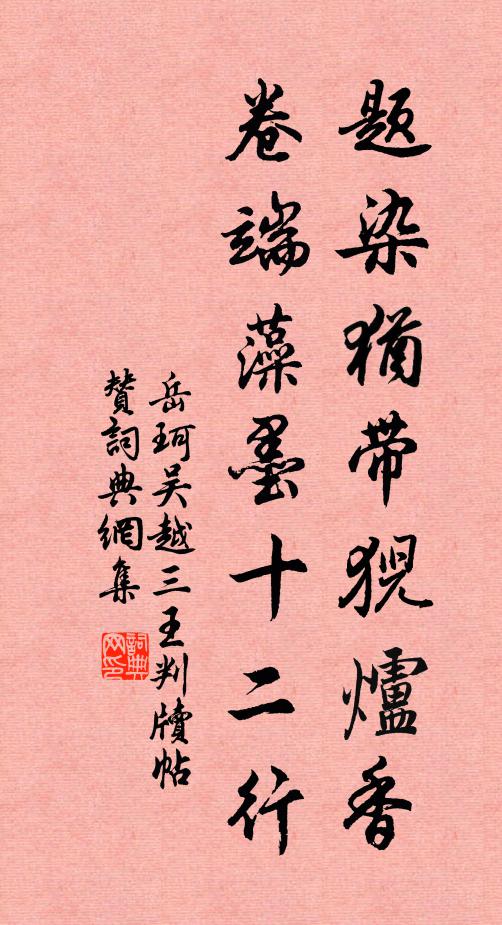 题染犹带猊爐香
卷端藻墨十二行
岳珂吴越三王判牘帖
贊詞典網集
詞典网印